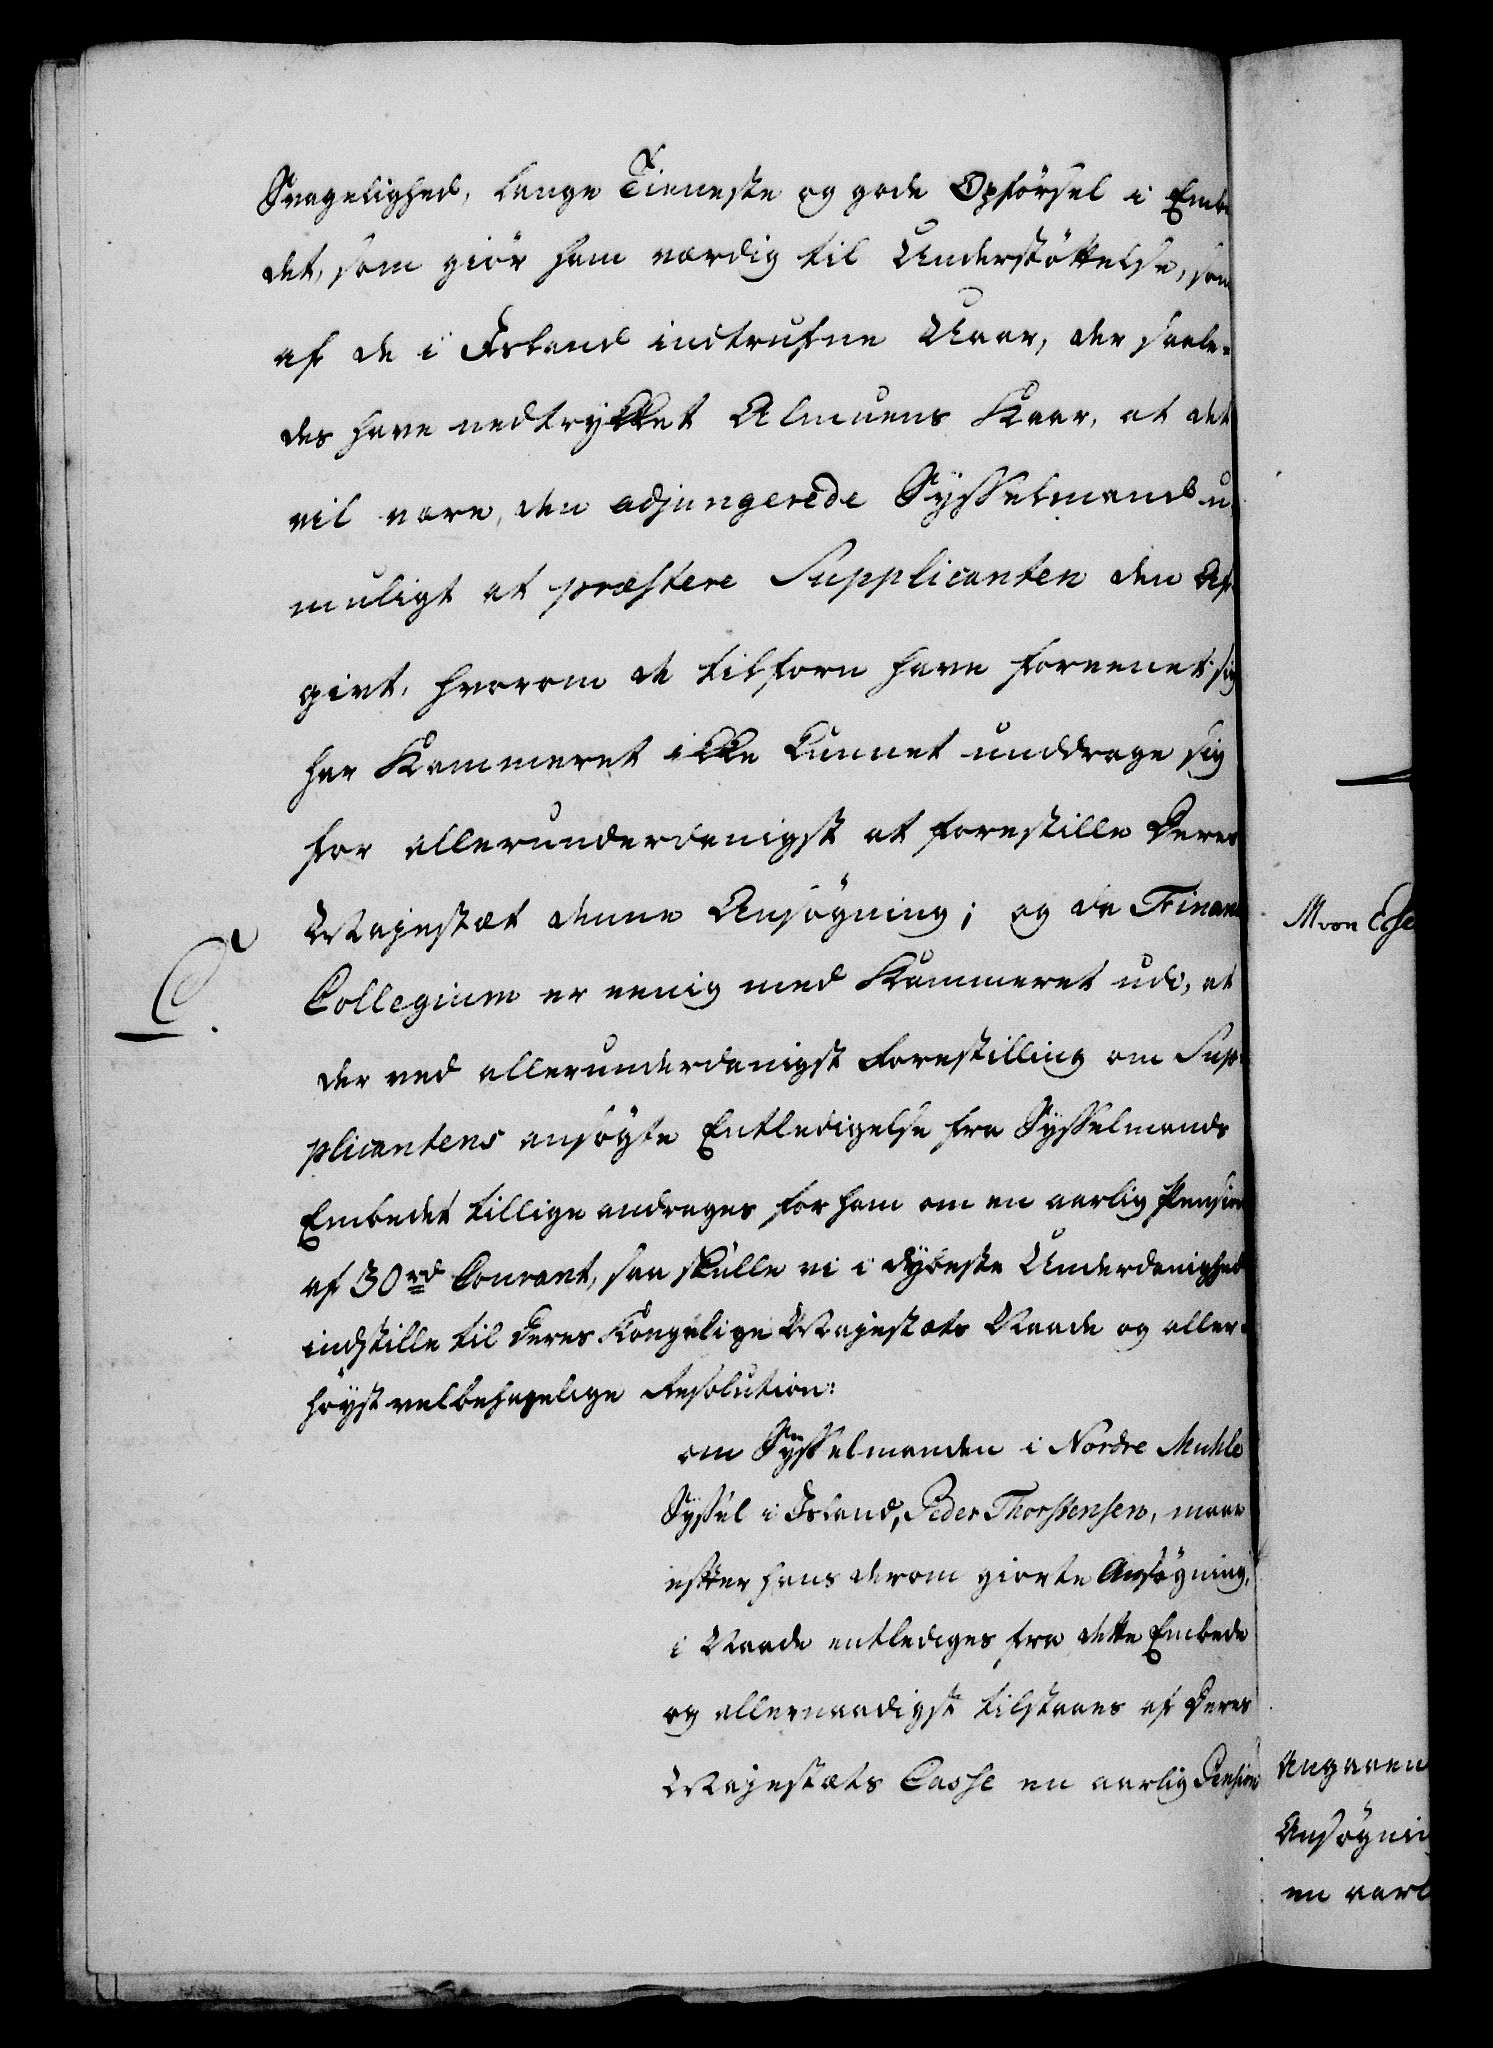 Svagelighed, lange Tieneste og gode Opførsel i Embe
det, som giør ham værdig til Understøttelse, som
af de i Island indtrufne Uaar, der saale-
des have nedtrykket Almuens Kaar, at det
vil være, den adjungerede Sysselmand u
muligt at præstere Supplicanten den Af-
givt, hvorom de tilforn have foreenet sig
har Kammeret ikke kunnet unddrage sig
for allerunderdanigst at forestille Deres
Majestæt denne Ansøgning; og da Finanz
Collegium er eenig med Kammeret udi, at
der ved allerunderdanigst Forestilling om Sup-
plicantens ansøgte Entledigelse fra Sysselmands
Embedet tillige andrages for ham om en aarlig Pension
af 30 rd Courant, saa skulle vi i dybeste Underdanighed
indstille til Deres Kongelige Majestæts Naade og aller-
høyst velbehagelige Resolution:
om Sysselmanden i Nordre Muhle
Syssel i Island, Peder Thorstensen, maae
efter hans derom giorte Ansøgning,
i Naade entlediges fra dette Embede
og allernaadigst tilstaaes af Deres
Majestæts Casse en aarlig Pension
M von
Angaaen
Ansøgni
en aarl